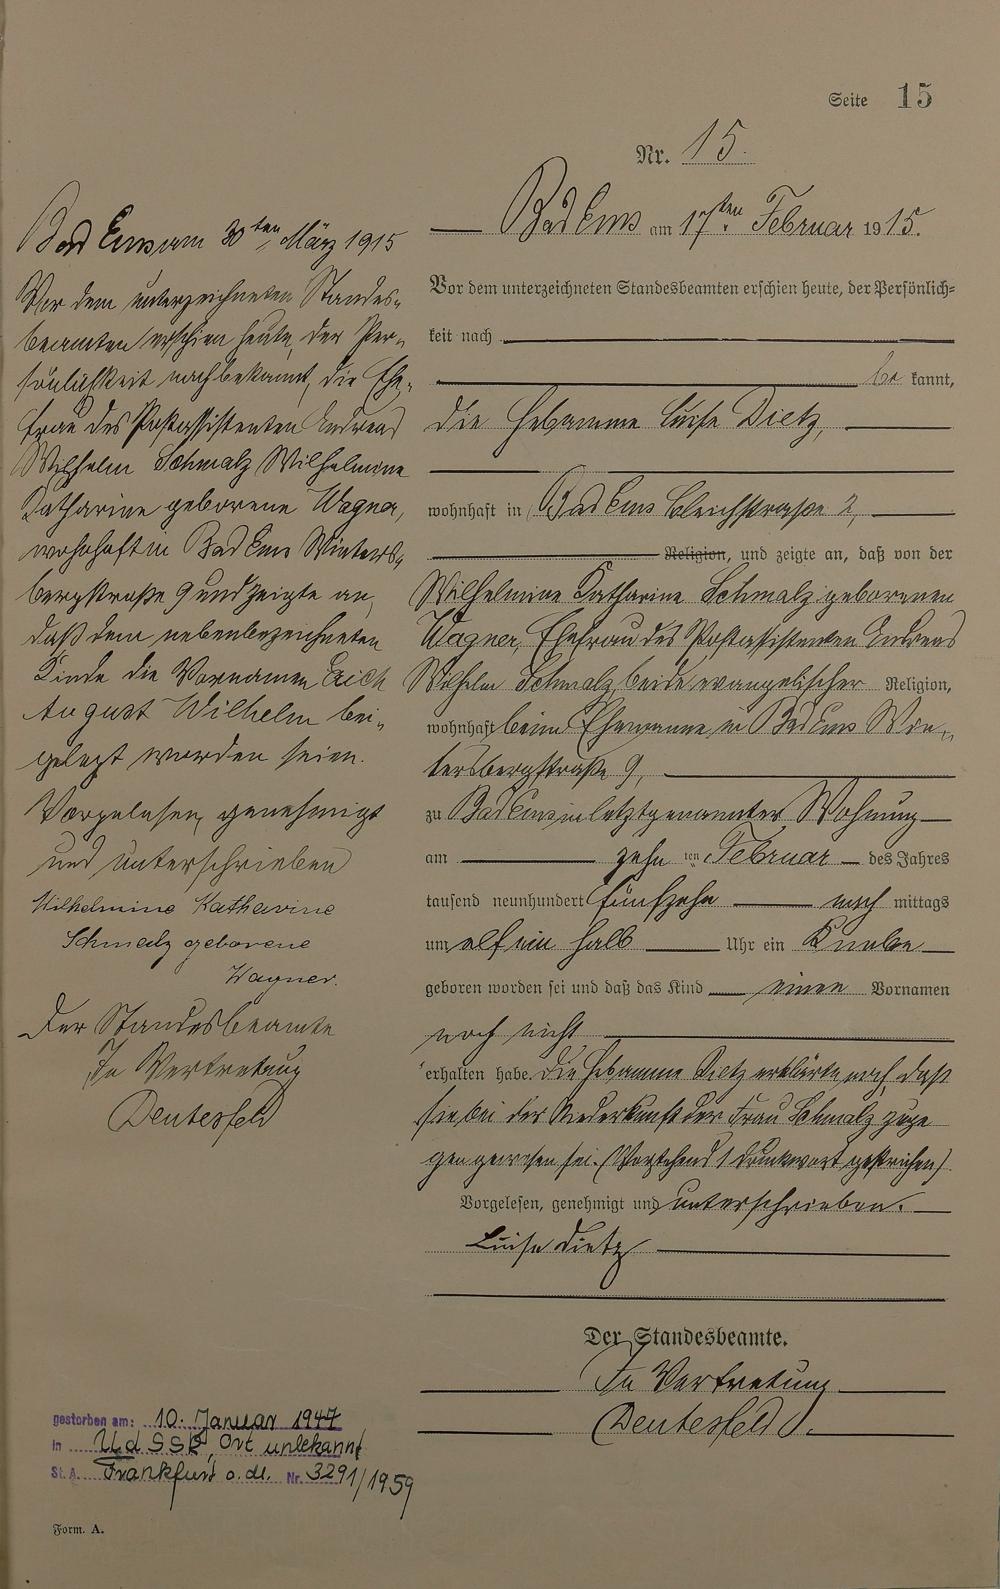 Seite 15
Nr. 15.
Bad Ems am 17ten Februar 1915.
Vor dem unterzeichneten Standesbeamten erschien heute, der Persönlich=
keit nach
be kannt,
die Hebamme Luise Dietz,
wohnhaft in Bad Ems Bleichstraße 2,
Religion, und zeigte an, daß von der
Wilhelmine Katharine Schmalz geborenen
Wagner, Ehefrau des Postassistenten Andreas
Wilhelm Schmalz, beide evangelischer Religion,
wohnhaft beim Ehemanne in Bad Ems Win-
tersbergstraße 9,
zu Bad Ems in letztgenannter Wohnung
am zehn ten Februar des Jahres
tausend neunhundert fünfzehn nach mittags
um elf ein halb Uhr ein Knabe
geboren worden sei und daß das Kind einen Vornamen
noch nicht
erhalten habe. Die Hebamme Dietz erklärte noch, daß
sie bei der Niederkunft der Frau Schmalz zuge
gen gewesen sei. (Vorstehend 1 Druckwort gestrichen)
Vorgelesen, genehmigt und unterschrieben.
Luise Dietz
Der Standesbeamte.
In Vertretung
Deutesfeld
Bad Ems am 30ten März 1915
Vor dem unterzeichneten Standes-
beamten erschien heute, der Per-
sönlichkeit nach bekannt, die Ehe-
frau des Postassistenten Andreas
Wilhelm Schmalz Wilhelmine
Katharine geborene Wagner,
wohnhaft in Bad Ems Winters-
bergstraße 9 und zeigte an,
daß dem nebenbezeichneten
Kinde die Vornamen Erich
August Wilhelm bei-
gelegt worden seien.
Vorgelesen, genehmigt
und unterschrieben
Wilhelmine Katharine
Schmalz geborene
Wagner.
Der Standesbeamte
In Vertretung
Deutesfeld
gestorben am: 10. Januar 1947
in UdSSR, Ort unbekannt
St. A. Frankfurt a. M. Nr. 3291/1959
Form. A.